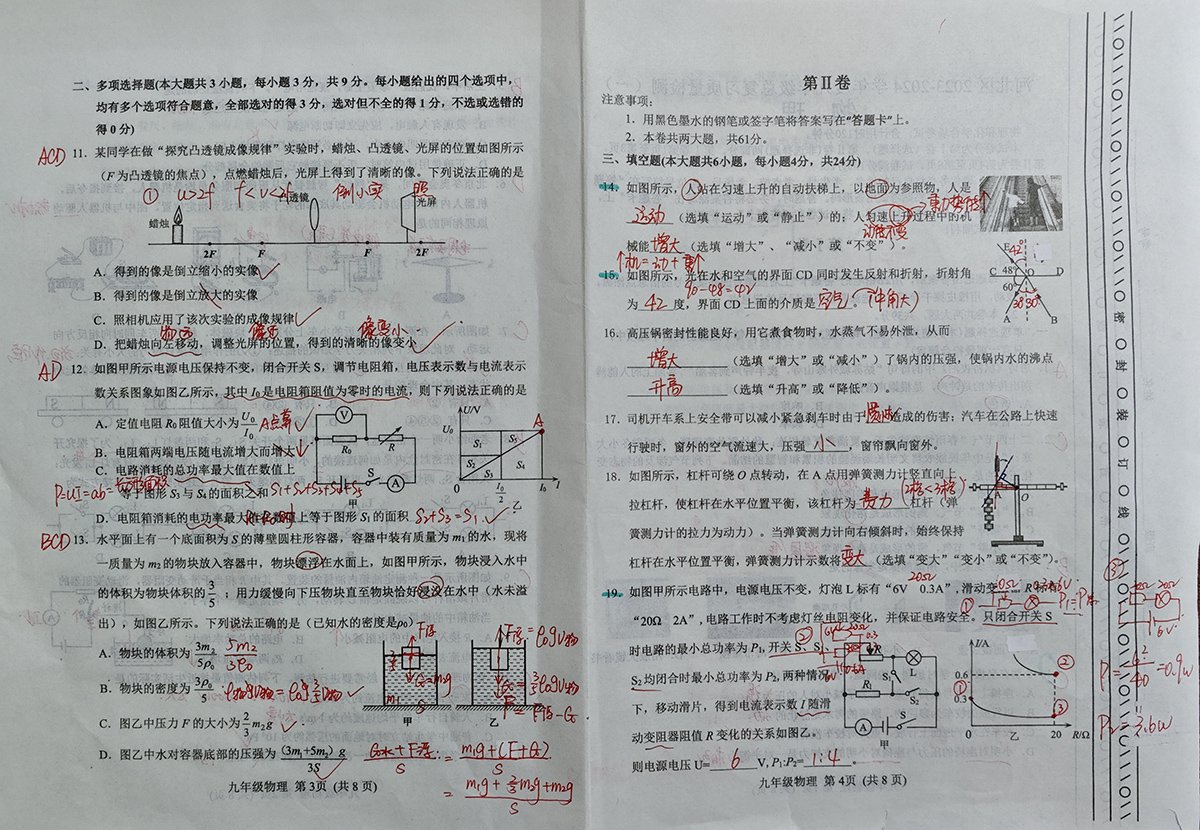 二、多项选择题(本大题共3小题，每小题3分，共9分。每小题给出的四个选项中，
均有多个选项符合题意，全部选对的得3分，选对但不全的得1分，不选或选错的
得0分)
ACD 11. 某同学在做“探究凸透镜成像规律”实验时，蜡烛、凸透镜、光屏的位置如图所示
（F为凸透镜的焦点），点燃蜡烛后，光屏上得到了清晰的像。下列说法正确的是
① u>2f f<v<2f 倒小实 照
透镜 光屏
蜡烛
2F F F 2F
A. 得到的像是倒立缩小的实像
B. 得到的像是倒立放大的实像
C. 照相机应用了该次实验的成像规律
物远 像近 像变小
D. 把蜡烛向左移动，调整光屏的位置，得到的清晰的像变小
AD 12. 如图甲所示电源电压保持不变，闭合开关S，调节电阻箱，电压表示数与电流表示
数关系图象如图乙所示，其中I₀是电阻箱阻值为零时的电流，则下列说法正确的是
A. 定值电阻R₀阻值大小为U₀/I₀ A点算
B. 电阻箱两端电压随电流增大而增大
C. 电路消耗的总功率最大值在数值上
P=UI=ab=长方形面积
等于图形S₃与S₄的面积之和 S₁+S₂+S₃+S₄+S₅
V R₀ R S A 甲
U/V U₀ S₁ S₅ S₂ S₃ S₄ 0 I₀/2 I₀ I 乙 A
D. 电阻箱消耗的电功率最大值在数值上等于图形S₁的面积 S₂+S₃=S₁
BCD 13. 水平面上有一个底面积为S的薄壁圆柱形容器，容器中装有质量为m₁的水，现将
一质量为m₂的物块放入容器中，物块漂浮在水面上，如图甲所示，物块浸入水中
的体积为物块体积的3/5；用力缓慢向下压物块直至物块恰好浸没在水中（水未溢
出），如图乙所示。下列说法正确的是（已知水的密度是ρ₀）
A. 物块的体积为3m₂/5ρ₀ 5m₂/3ρ₀
B. 物块的密度为3ρ₀/5 ρ物gV物=ρ₀g3/5V物
C. 图乙中压力F的大小为2/3m₂g
D. 图乙中水对容器底部的压强为(3m₁+5m₂)g/3S G水+F浮/S = m₁g+(F+G)/S
= m₁g+2/3m₂g+m₂g/S
F浮 G=m₂g m₁ S 甲
F浮=ρ₀gV物 G=3/5ρ₀gV物 F=F浮-G 乙
九年级物理 第3页 (共8页)
第Ⅱ卷
注意事项：
1. 用黑色墨水的钢笔或签字笔将答案写在“答题卡”上。
2. 本卷共两大题，共61分。
三、填空题(本大题共6小题，每小题4分，共24分)
14. 如图所示，人站在匀速上升的自动扶梯上，以地面为参照物，人是
运动（选填“运动”或“静止”）的；人匀速上升过程中的机
重力势能↑
动能不变
械能增大（选填“增大”、“减小”或“不变”）。
↑机=动+重↑
15. 如图所示，光在水和空气的界面CD同时发生反射和折射，折射角
90-48=42
为42度，界面CD上面的介质是空气。（空气角大）
E 42° C 48° O D 60° 30° 30° A B
16. 高压锅密封性能良好，用它煮食物时，水蒸气不易外泄，从而
增大（选填“增大”或“减小”）了锅内的压强，使锅内水的沸点
升高（选填“升高”或“降低”）。
17. 司机开车系上安全带可以减小紧急刹车时由于惯性造成的伤害；汽车在公路上快速
行驶时，窗外的空气流速大，压强小，窗帘飘向窗外。
18. 如图所示，杠杆可绕O点转动，在A点用弹簧测力计竖直向上
拉杠杆，使杠杆在水平位置平衡，该杠杆为费力杠杆（弹
（2格<3格）
簧测力计的拉力为动力）。当弹簧测力计向右倾斜时，始终保持
杠杆在水平位置平衡，弹簧测力计示数将变大（选填“变大”“变小”或“不变”）。
A O
20Ω
19. 如图甲所示电路中，电源电压不变，灯泡L标有“6V 0.3A”，滑动变阻器R标有
“20Ω 2A”，电路工作时不考虑灯丝电阻变化，并保证电路安全。只闭合开关S
时电路的最小总功率为P₁，开关S、S₁、
S₂均闭合时最小总功率为P₂，两种情况
下，移动滑片，得到电流表示数I随滑
动变阻器阻值R变化的关系如图乙。
则电源电压U=6V, P₁:P₂=1:4。
R L S₁ S₂ R₁ A S 甲
I/A 0.6 0.3 0 20 R/Ω 乙 ① ② ③
20Ω 20Ω 6V
P₁=6²/40=0.9W
P₂=3.6W
九年级物理 第4页 (共8页)
密 封 装 订 线